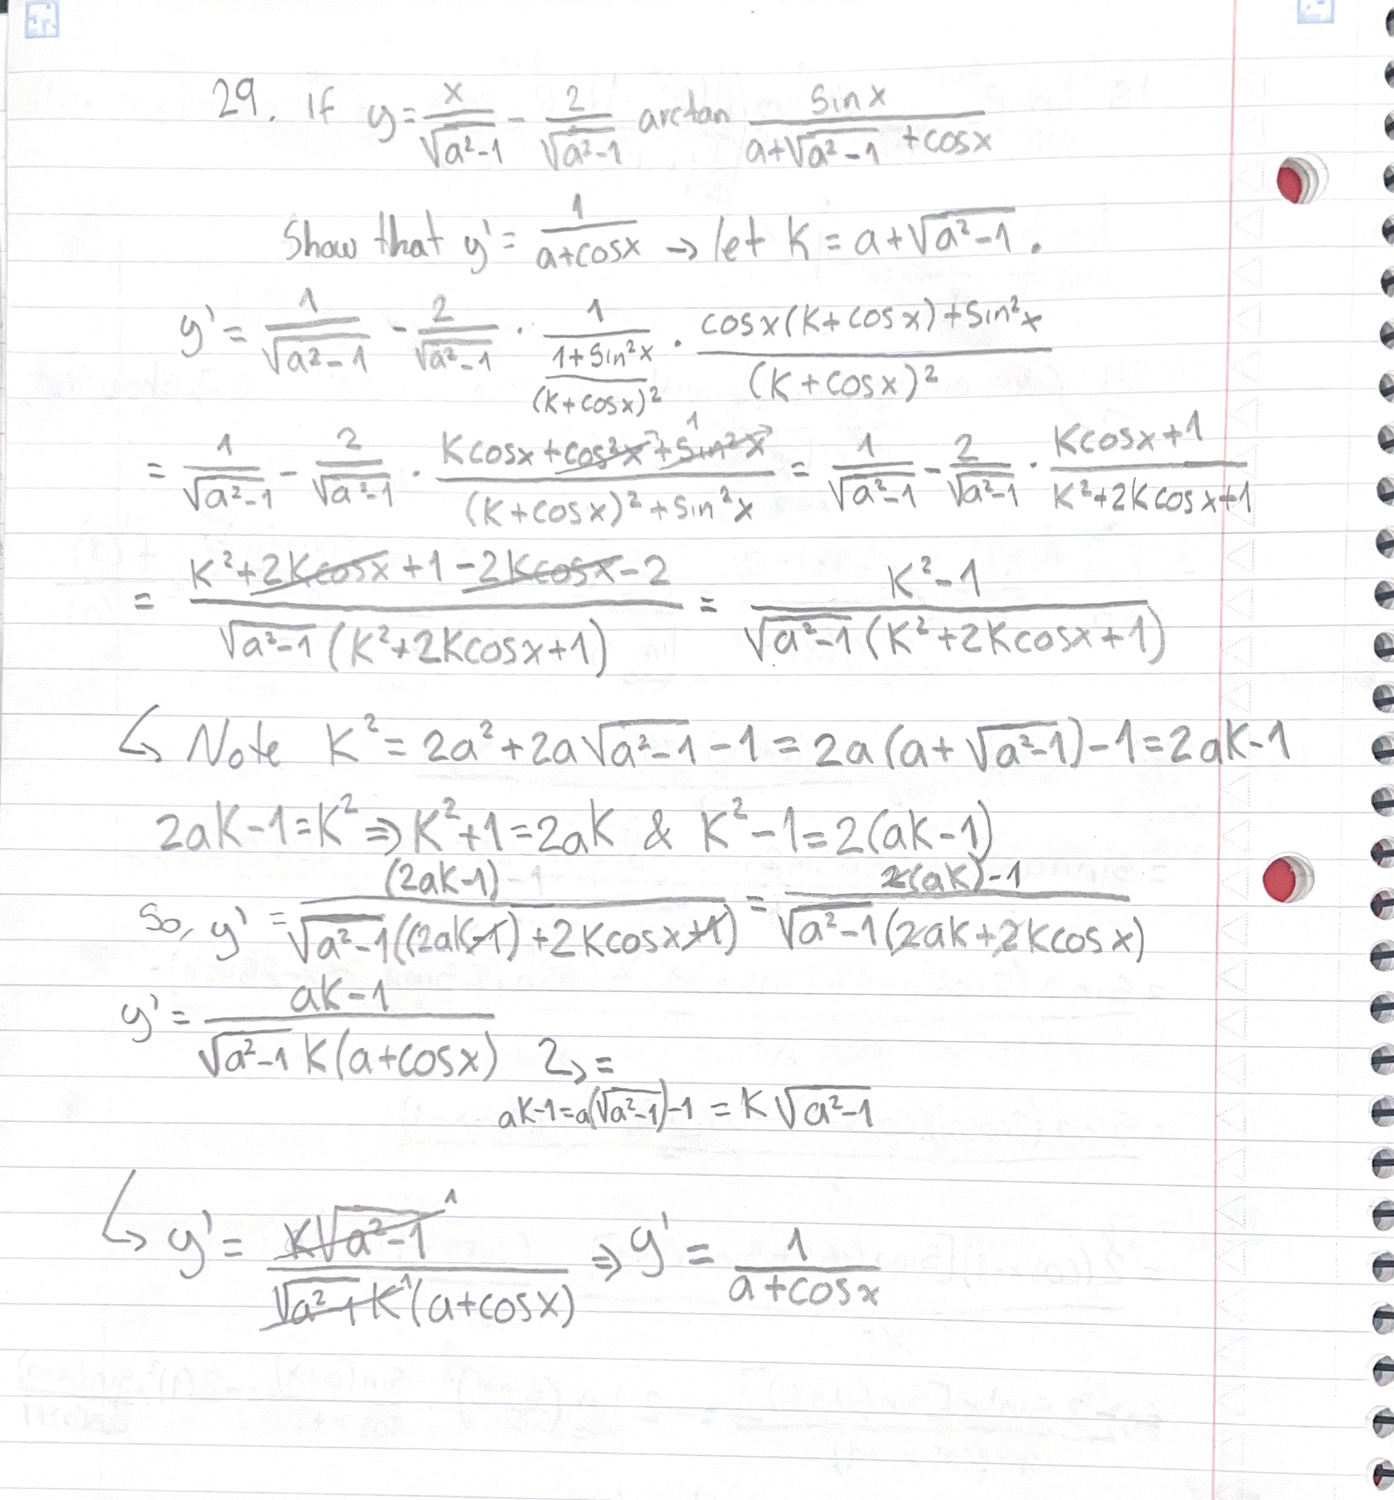 29. If y = x/√(a²-1) - 2/√(a²-1) arctan sinx/(a+√(a²-1) + cosx)
Show that y' = 1/(a+cosx) → let K = a+√(a²-1).
y' = 1/√(a²-1) - 2/√(a²-1) · 1/((1+Sin²x)/(K+cosx)²) · (cosx(K+cosx)+Sin²x)/(K+cosx)²
= 1/√(a²-1) - 2/√(a²-1) · (Kcosx+cos²x+Sin²x)/((K+cosx)²+Sin²x) = 1/√(a²-1) - 2/√(a²-1) · (Kcosx+1)/(K²+2Kcosx+1)
= (K²+2Kcosx+1-2Kcosx-2)/(√(a²-1)(K²+2Kcosx+1)) = (K²-1)/(√(a²-1)(K²+2Kcosx+1))
↳ Note K² = 2a²+2a√(a²-1)-1 = 2a(a+√(a²-1))-1 = 2aK-1
2aK-1=K² ⇒ K²+1=2aK & K²-1=2(aK-1)
So, y' = (2aK-1)-1/(√(a²-1)((2aK-1)+2Kcosx+1)) = 2(aK)-1/(√(a²-1)(2aK+2Kcosx))
y' = (aK-1)/(√(a²-1)K(a+cosx)) ↳ =
aK-1=a(√(a²-1))-1 = K√(a²-1)
↳ y' = K√(a²-1)/(√(a²-1)K(a+cosx)) ⇒ y' = 1/(a+cosx)